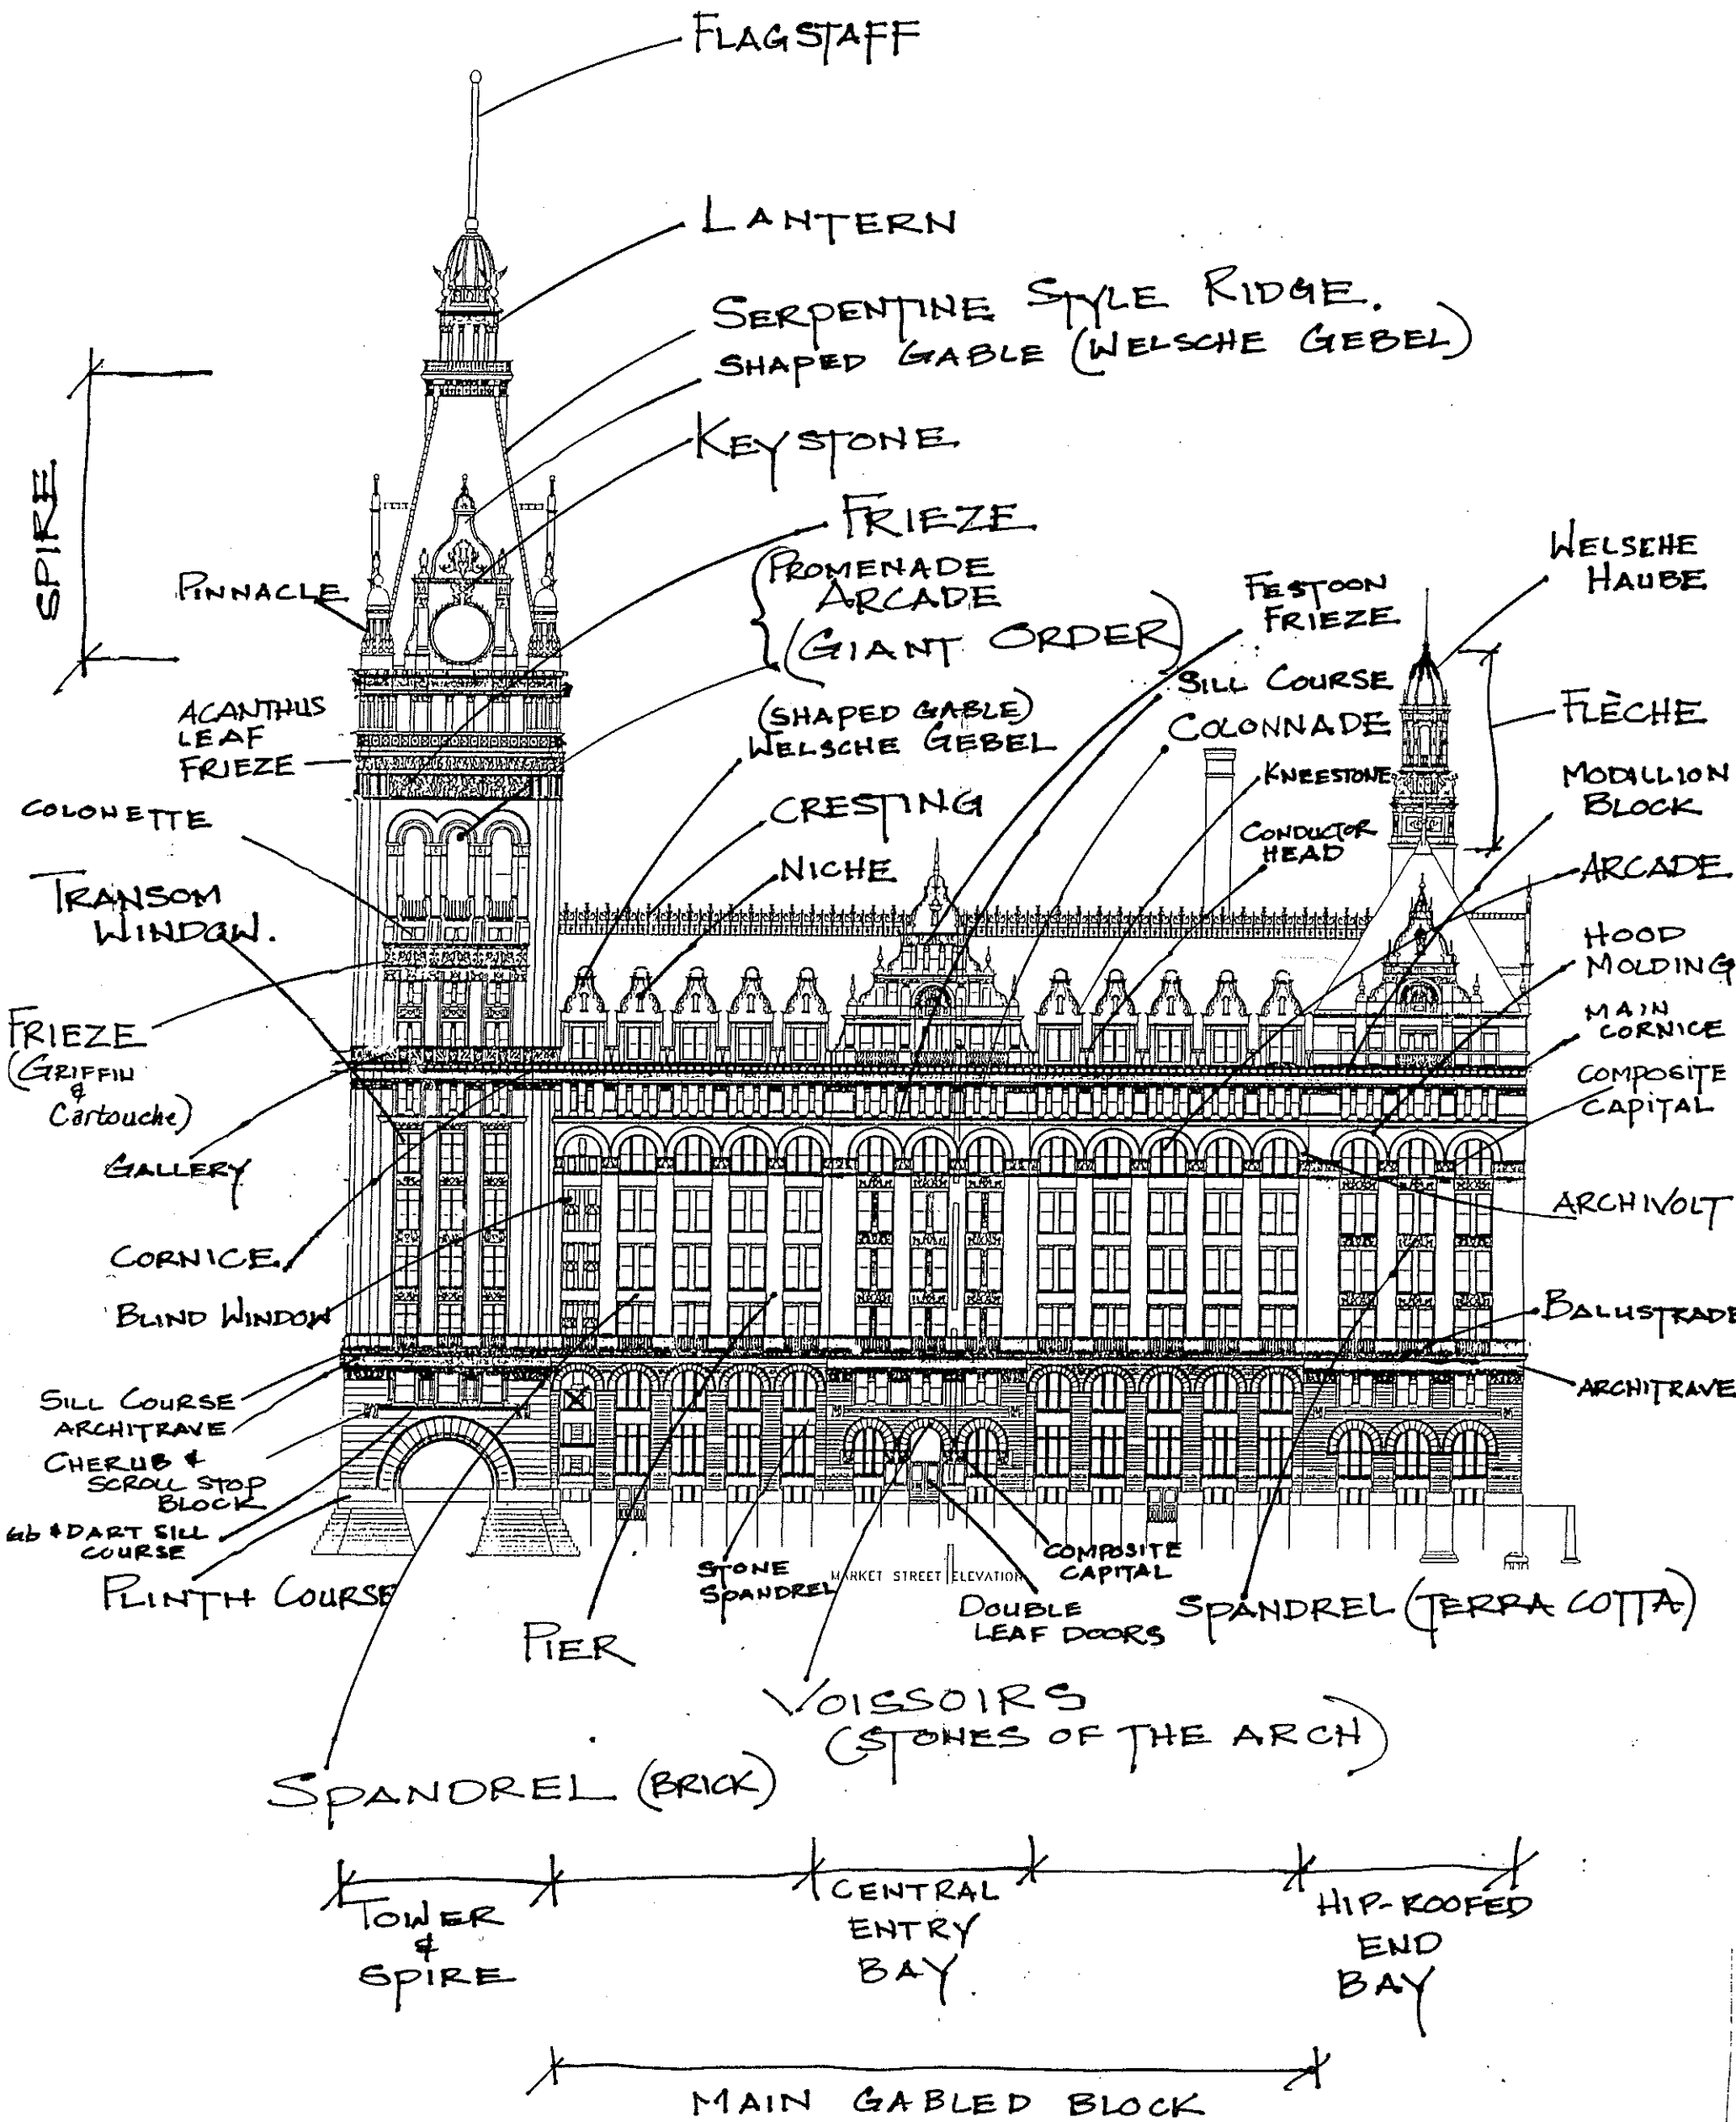 FLAGSTAFF
LANTERN
SERPENTINE STYLE RIDGE.
SHAPED GABLE (WELSCHE GEBEL)
KEYSTONE
SPIRE
FRIEZE
PROMENADE
ARCADE
(GIANT ORDER)
PINNACLE
FESTOON
FRIEZE
WELSCHE
HAUBE
ACANTHUS
LEAF
FRIEZE
(SHAPED GABLE)
WELSCHE GEBEL
SILL COURSE
COLONNADE
FLÈCHE
KNEESTONE
MODILLION
BLOCK
COLONETTE
CRESTING
CONDUCTOR
HEAD
NICHE
ARCADE
TRANSOM
WINDOW.
HOOD
MOLDING
FRIEZE
(GRIFFIN
&
Cartouche)
MAIN
CORNICE
COMPOSITE
CAPITAL
GALLERY
ARCHIVOLT
CORNICE.
BLIND WINDOW
BALUSTRADE
SILL COURSE
ARCHITRAVE
ARCHITRAVE
CHERUB &
SCROLL STOP
BLOCK
& DART SILL
COURSE
PLINTH COURSE
STONE
SPANDREL
MARKET STREET ELEVATION
COMPOSITE
CAPITAL
DOUBLE
LEAF DOORS
SPANDREL (TERRA COTTA)
PIER
VOISSOIRS
(STONES OF THE ARCH)
SPANDREL (BRICK)
TOWER
&
SPIRE
CENTRAL
ENTRY
BAY
HIP-ROOFED
END
BAY
MAIN GABLED BLOCK